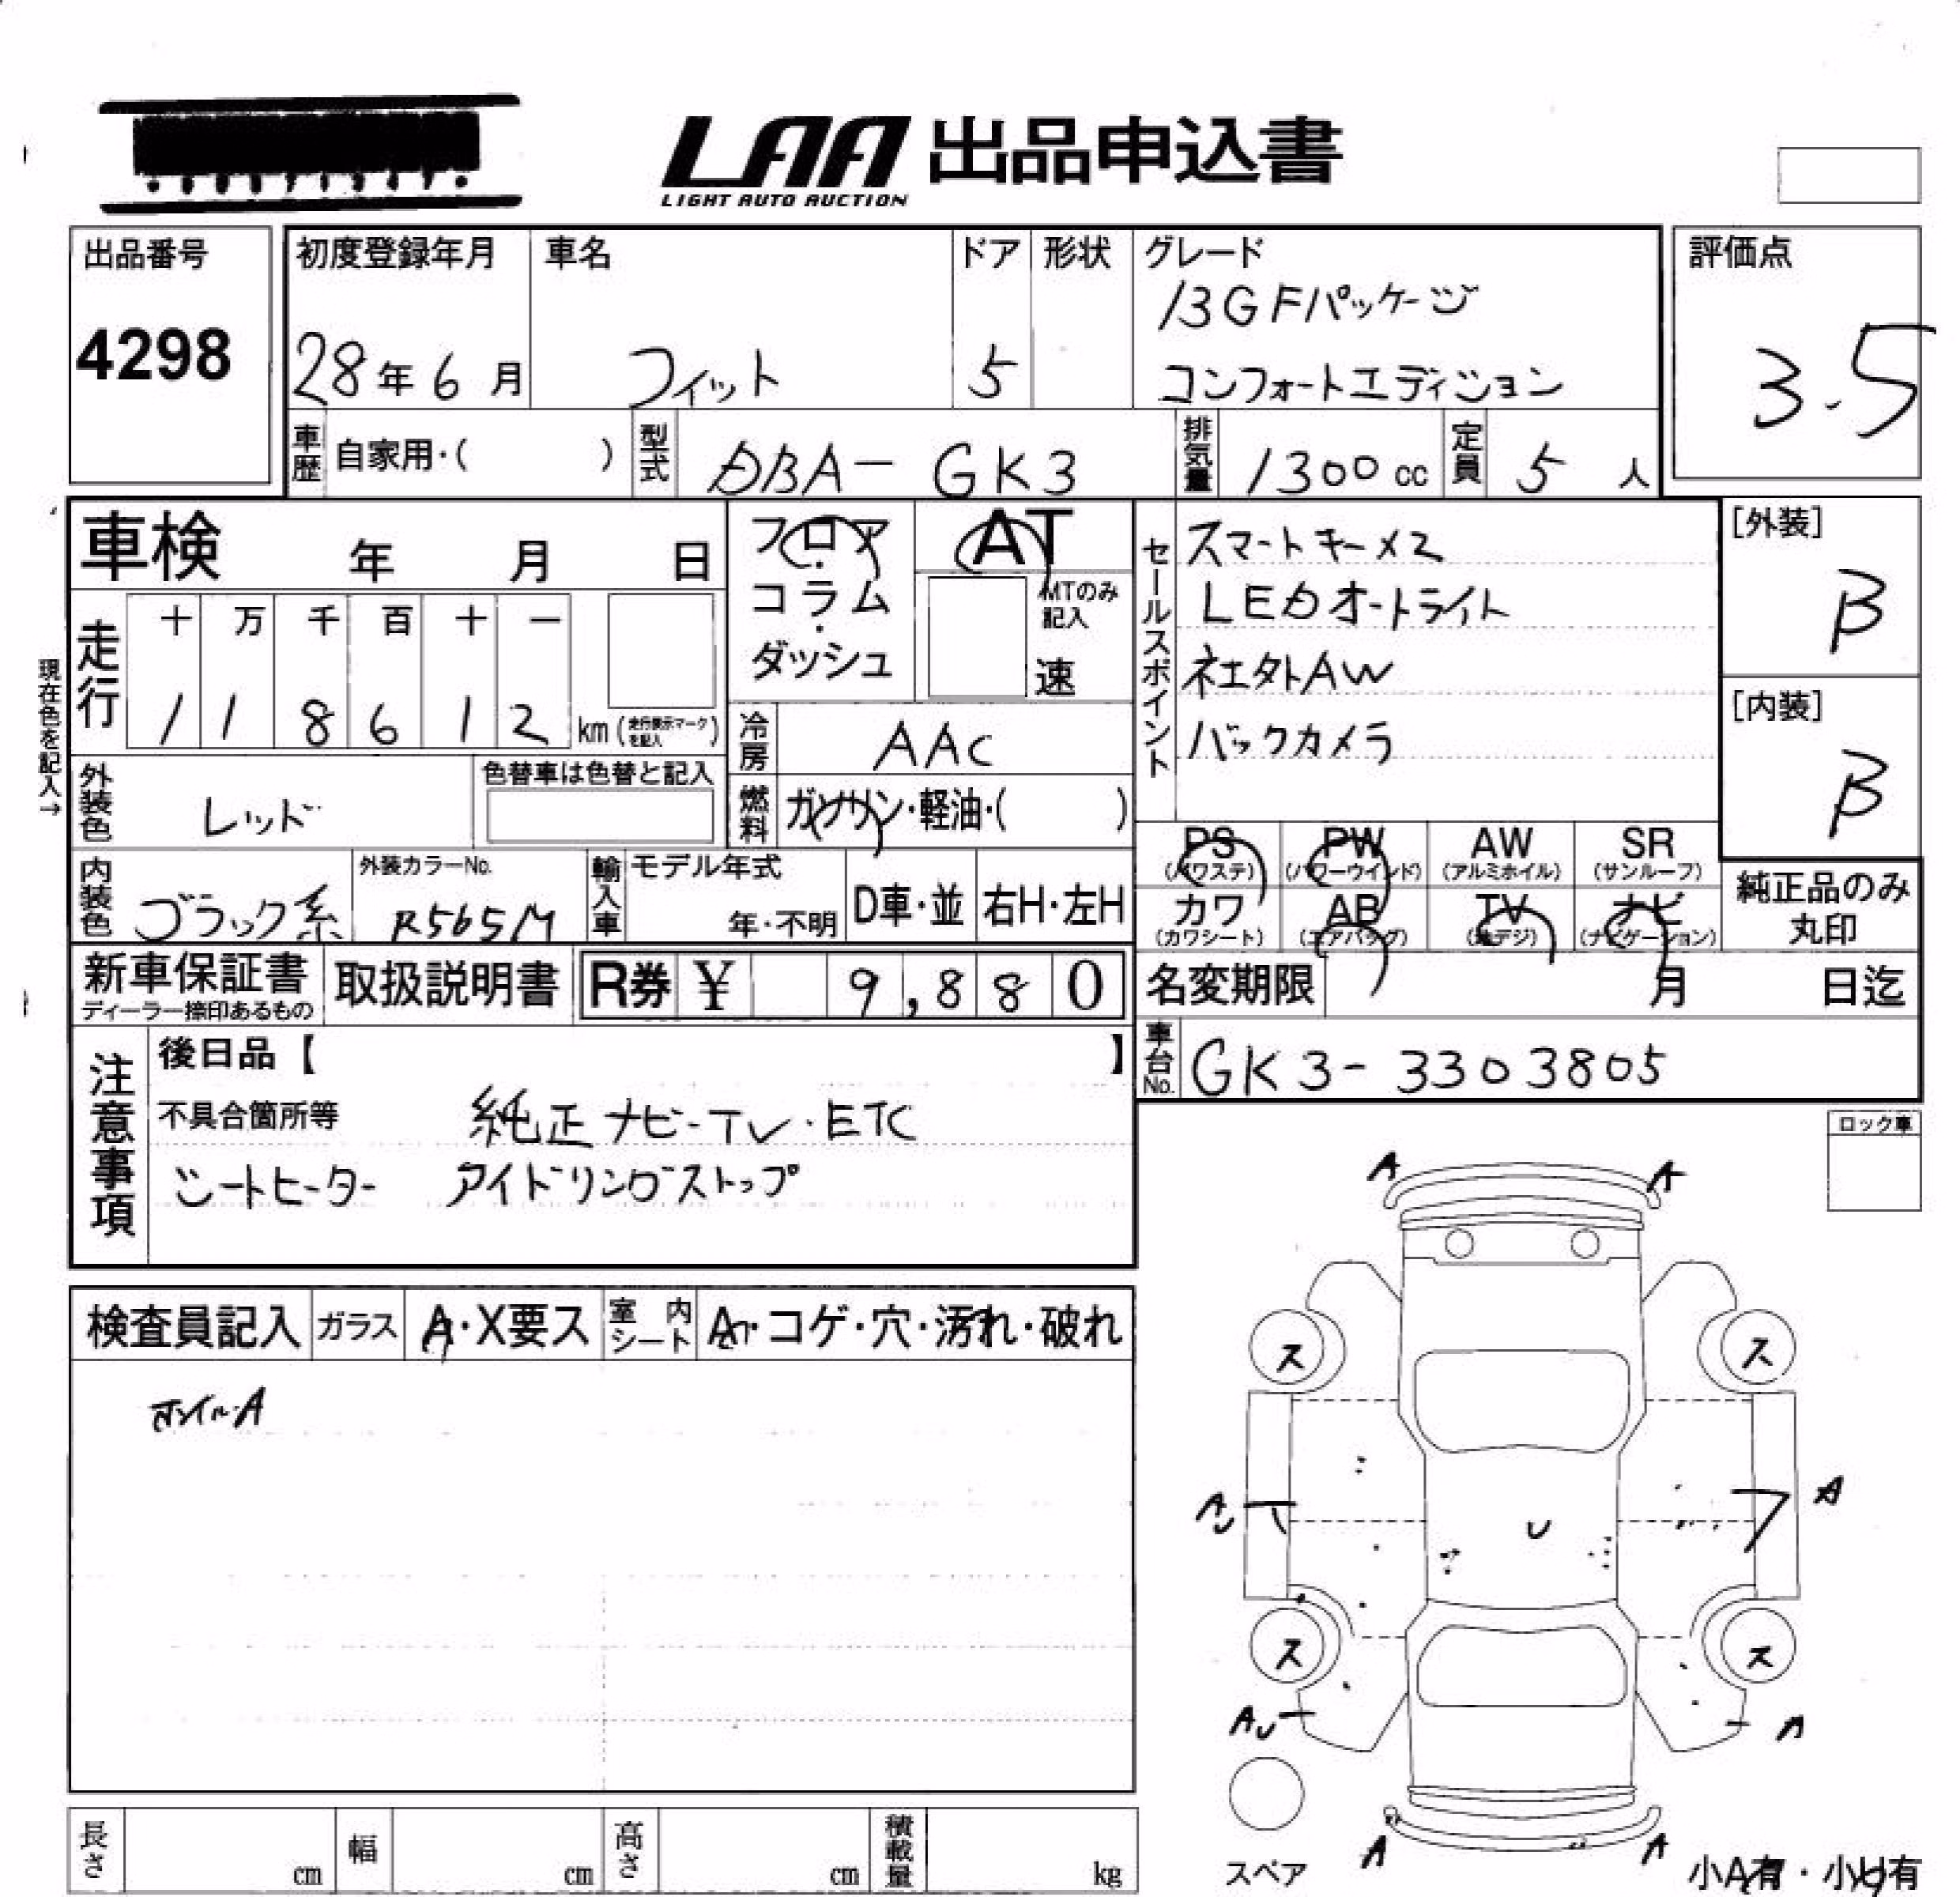 LAA 出品申込書
LIGHT AUTO AUCTION
出品番号
4298
初度登録年月
28年6月
車名
フィット
ドア
5
形状
グレード
13G Fパッケージ
コンフォートエディション
評価点
3.5
車歴 自家用・( )
型式 DBA-GK3
排気量 1300cc
定員 5人
車検 年 月 日
走行
十 万 千 百 十 一
1 1 8 6 1 2 km(走行表示マークを記入)
現在色を記入→
フロア・コラム・ダッシュ
AT
MTのみ記入
速
冷房 AAC
燃料 ガソリン・軽油・( )
セールスポイント
スマートキー×2
LEDオートライト
社外AW
バックカメラ
[外装]
B
[内装]
B
外装色 レッド
色替車は色替と記入
内装色 ブラック系
外装カラーNo.
R565M
輸入車
モデル年式
年・不明
D車・並
右H・左H
PS (パワステ)
PW (パワーウインド)
AW (アルミホイル)
SR (サンルーフ)
カワ (カワシート)
AB (エアバッグ)
TV (地デジ)
ナビ (ナビゲーション)
純正品のみ
丸印
新車保証書
ディーラー捺印あるもの
取扱説明書
R券 ¥ 9,880
名変期限 月 日迄
車台No. GK3-3303805
注意事項
後日品【 】
不具合箇所等 純正ナビ・TV・ETC
シートヒーター アイドリングストップ
ロック車
検査員記入
ガラス A・X要ス
室内シート A・コゲ・穴・汚れ・破れ
ホイールA
A A
ス ス
AU A
U
ス ス
AU A
A A
スペア
小A有・小U有
長さ cm
幅 cm
高さ cm
積載量 kg